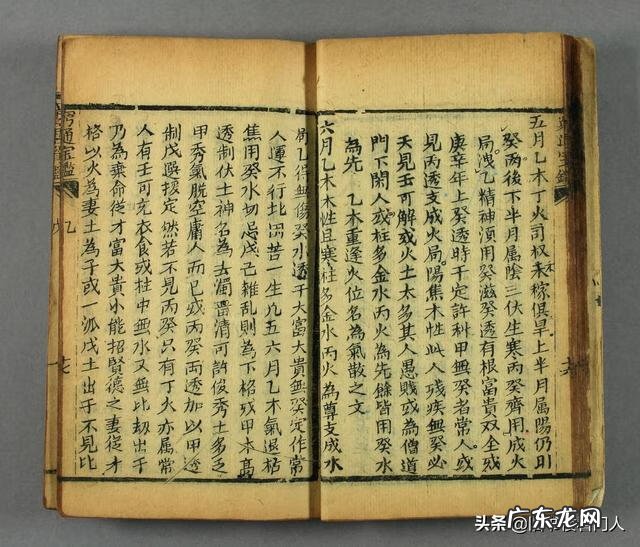 五月乙木丁火司权禾稼俱旱上半月属陽仍用
癸丙後下半月属陰三伏生寒丙癸齊用成火
局洩乙精神湏用癸滋癸透有根富貴双全或
庚辛年上癸透時干定許科甲無癸者常人或
見丙透支成火局陽焦木性此人残疾無癸必
夭見壬可解或火土太多其人愚賤或為僧道
門下閑人或柱多金水丙火為先餘皆用癸水
為先 乙木重逢火位名為氣散之文
六月乙木木性且寒柱多金水丙火為尊支成水
局乙得無傷癸水透干大富大貴無癸定作常
人運不行北困苦一生凡五六月乙木氣退枯
焦用癸水切忌戊己雜乱則為下格或甲木高
透制伏土神名為去濁畱清可許俊秀土多乏
甲秀氣脱空庸人而已或丙癸両透加以甲透
制戊選援定然若不見丙癸只有丁火亦属常
人有壬可充衣食或柱中無水又無比劫出干
乃為棄命従才富大貴小能招賢德之妻従才
格以火為妻土為子或一派戊土出干不見比
窮通宝鑑
头条
门人
广东龙网